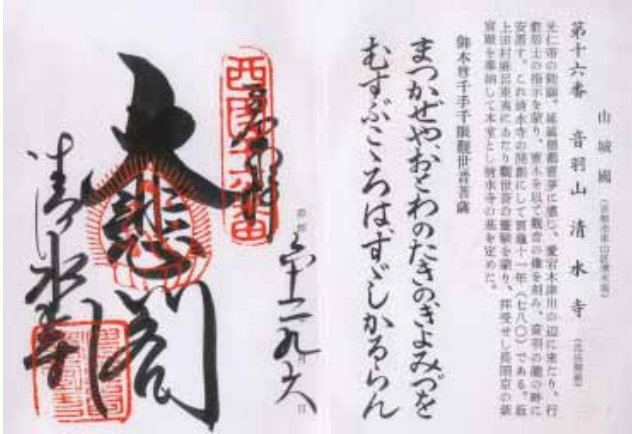 山城國（京都市東山区清水坂）
第十六番　音羽山　清水寺（北法相宗）
光仁帝の勅願。延鎮僧都霊夢に感じ、愛宕木津川の辺に来たり、行
叡居士の指示を蒙り、霊木を以て観音の像を刻み、音羽の瀧の畔に
安置す。これ清水寺の開創にして宝亀十一年（七八〇）である。坂
上田村麻呂東夷にあたり観世音の霊験を蒙り、拝受せし長岡京の紫
宸殿を奉納して本堂とし清水寺の基を定めた。
御本尊千手千眼觀世音菩薩
まつかぜや、おとわのたきのきよみづを
むすぶこゝろはすゞしかるらん
六十二 九 六日
西国十六番
奉拝
大悲閣
清水寺